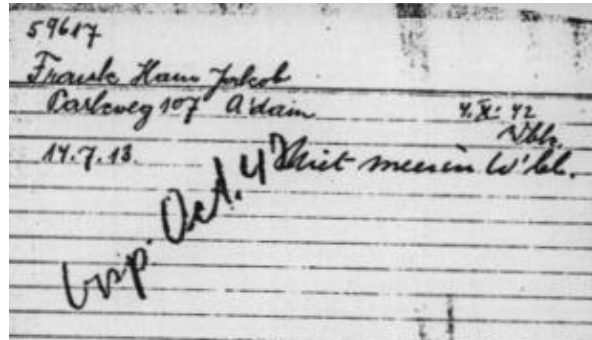 59617
Frank Hans Jakob
Parkweg 107 A'dam
4.XI.42
Wbk.
14.7.13.
niet meer in W'bk.
Oct. 42